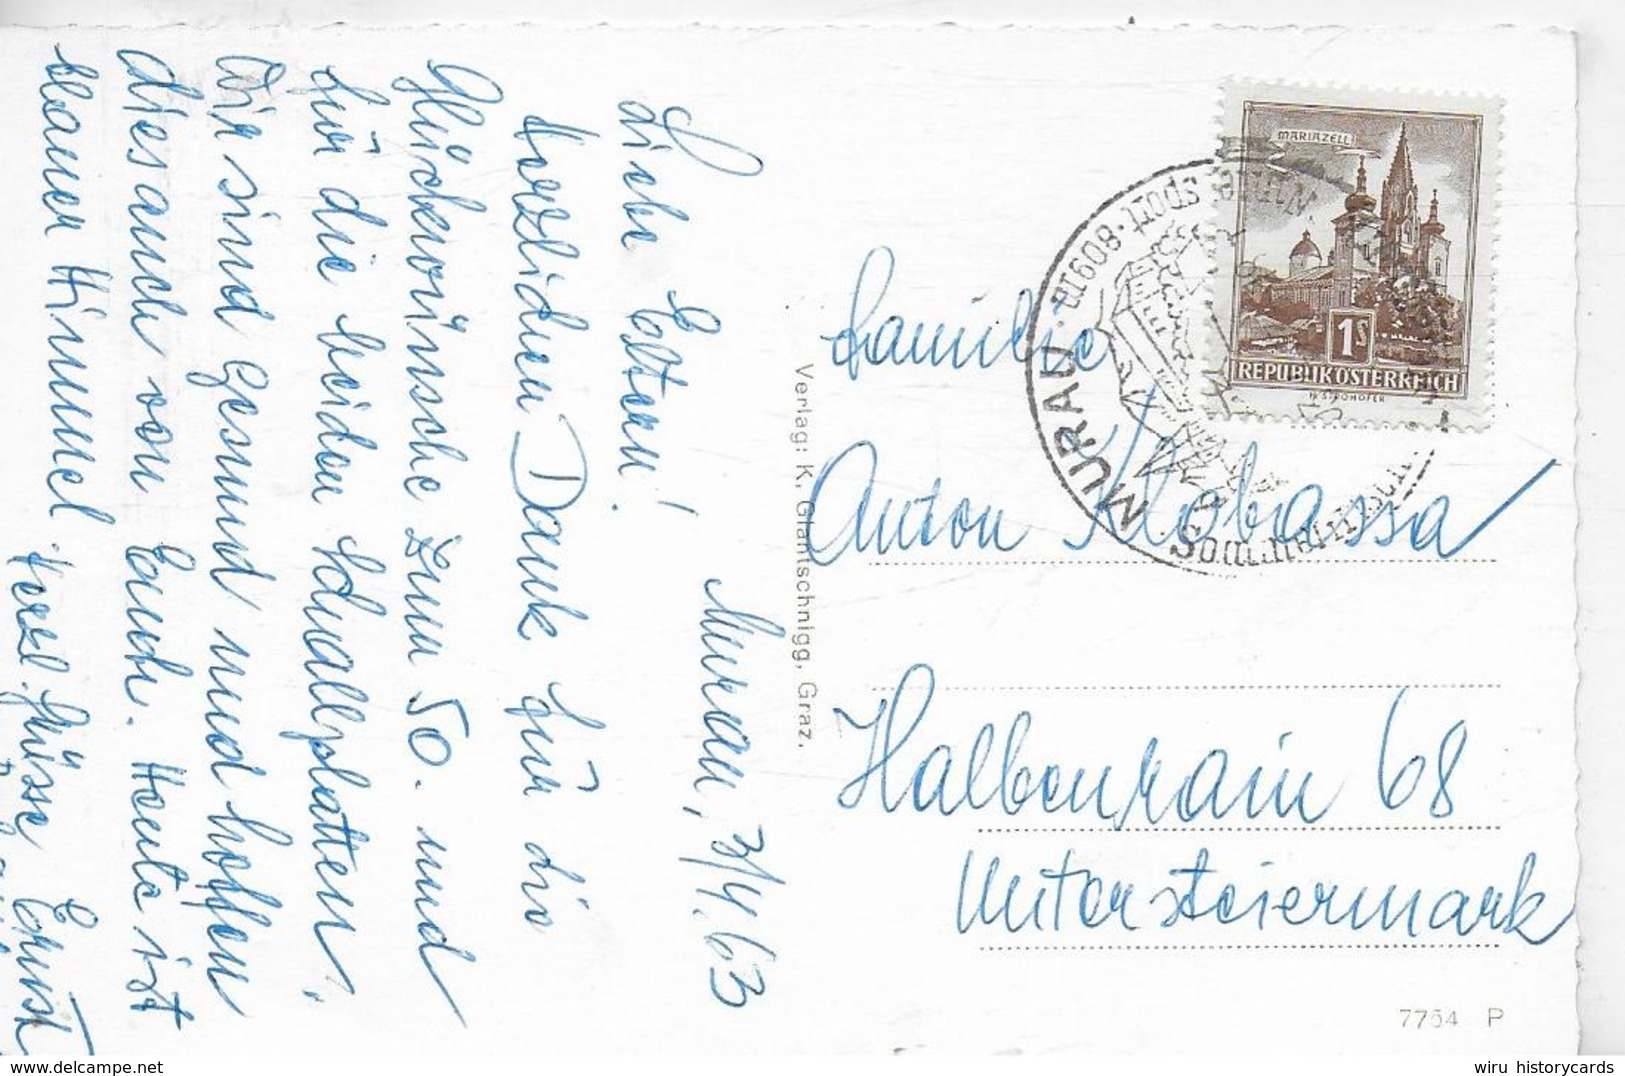 Murau, 3/4. 63
Liebe Eltern!
Herzlichen Dank für die
Glückwünsche zum 50. und
für die beiden Schallplatten.
Wir sind Gesund und hoffen
dies auch von Euch. Heute ist
blauer Himmel. Herzl. Grüsse Ernst
Familie
Anton Klobassa
Halbenrain 68
Untersteiermark
Verlag: K. Glantschnigg, Graz.
7754 P
MARIAZELL
1S
REPUBLIK ÖSTERREICH
MURAU · 809m · sport
Sommerfrische
wiru historycards